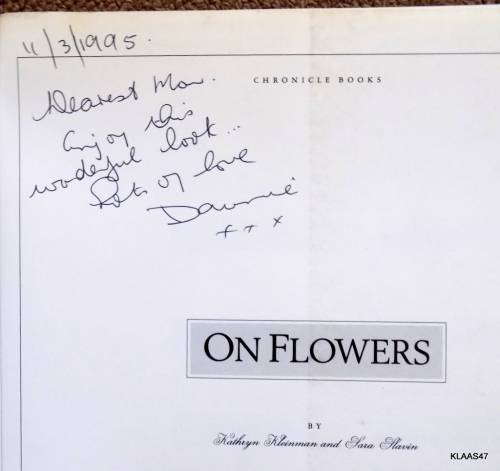 11/3/1995.
CHRONICLE BOOKS
Dearest Mom.
Enjoy this
wonderful book...
Lots of love
Dawnie
x + x
ON FLOWERS
BY
Kathryn Kleinman and Sara Slavin
KLAAS47